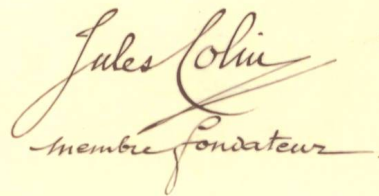 Jules Colin
membre fondateur